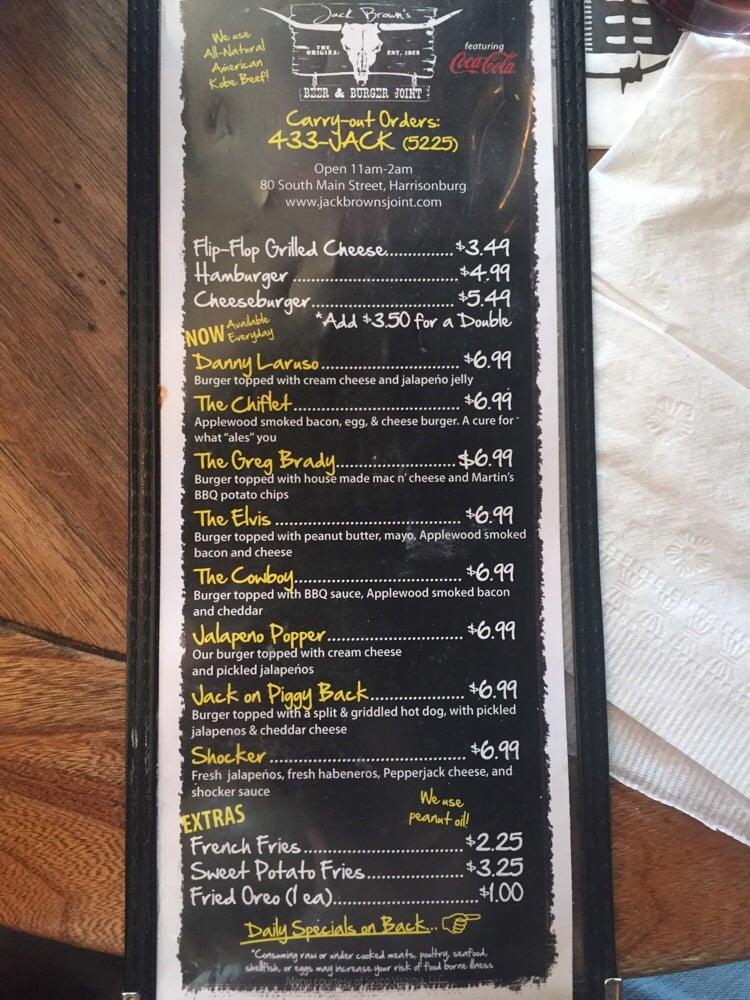 We use
All-Natural
American
Kobe Beef!
Jack Brown's
THE ORIGINAL EST. 
BEER & BURGER JOINT
featuring
Coca-Cola
Carry-out Orders:
433-JACK (5225)
Open 11am-2am
80 South Main Street, Harrisonburg
www.jackbrownsjoint.com
Flip-Flop Grilled Cheese............... $3.49
Hamburger .................................... $4.99
Cheeseburger................................ $5.49
*Add $3.50 for a Double
NOW Available Everyday
Danny Laruso............................... $6.99
Burger topped with cream cheese and jalapeño jelly
The Chiflet..................................... $6.99
Applewood smoked bacon, egg, & cheese burger. A cure for
what "ales" you
The Greg Brady.......................... $6.99
Burger topped with house made mac n' cheese and Martin's
BBQ potato chips
The Elvis ......................................... $6.99
Burger topped with peanut butter, mayo, Applewood smoked
bacon and cheese
The Cowboy..................................... $6.99
Burger topped with BBQ sauce, Applewood smoked bacon
and cheddar
Jalapeno Popper.............................. $6.99
Our burger topped with cream cheese
and pickled jalapeños
Jack on Piggy Back..................... $6.99
Burger topped with a split & griddled hot dog, with pickled
jalapenos & cheddar cheese
Shocker ........................................... $6.99
Fresh jalapeños, fresh habeneros, Pepperjack cheese, and
shocker sauce
We use
peanut oil!
EXTRAS
French Fries................................... $2.25
Sweet Potato Fries...................... $3.25
Fried Oreo (1 ea)................................ $1.00
Daily Specials on Back...
*Consuming raw or under cooked meats, poultry, seafood,
shellfish, or eggs may increase your risk of food borne illness